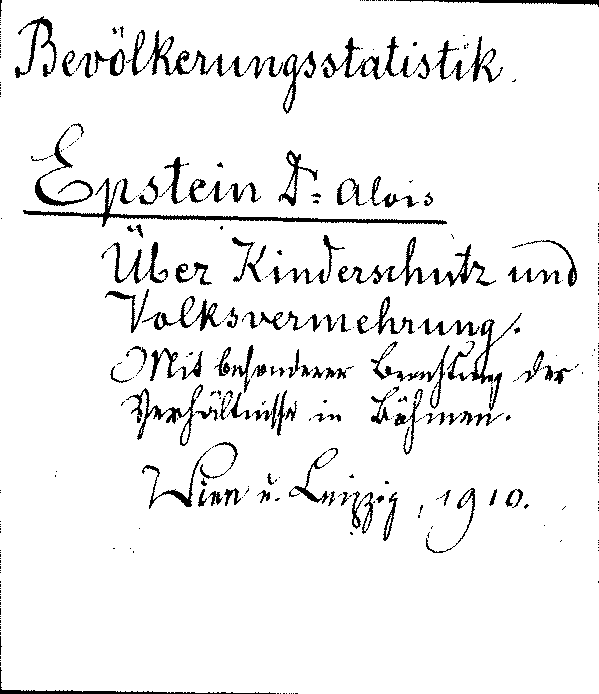 Bevölkerungsstatistik.
Epstein Dr. Alois
Über Kinderschutz und
Volksvermehrung.
Mit besonderer Beachtung der
Verhältnisse in Böhmen.
Wien u. Leipzig, 1910.